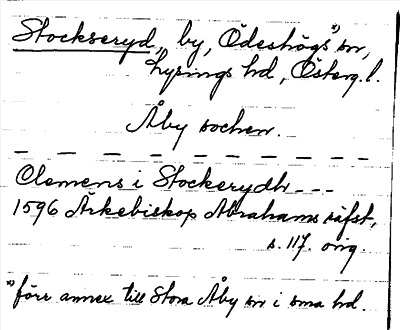 Stockseryd, by, Ödeshögs*) sn,
Lysings hd, Österg. l.
Åby socken.
Clemens i Stockerydh ---
1596 Ärkebiskop Abrahams räfst,
s. 117. orig.
*) förr annex till Stora Åby sn i sma hd.